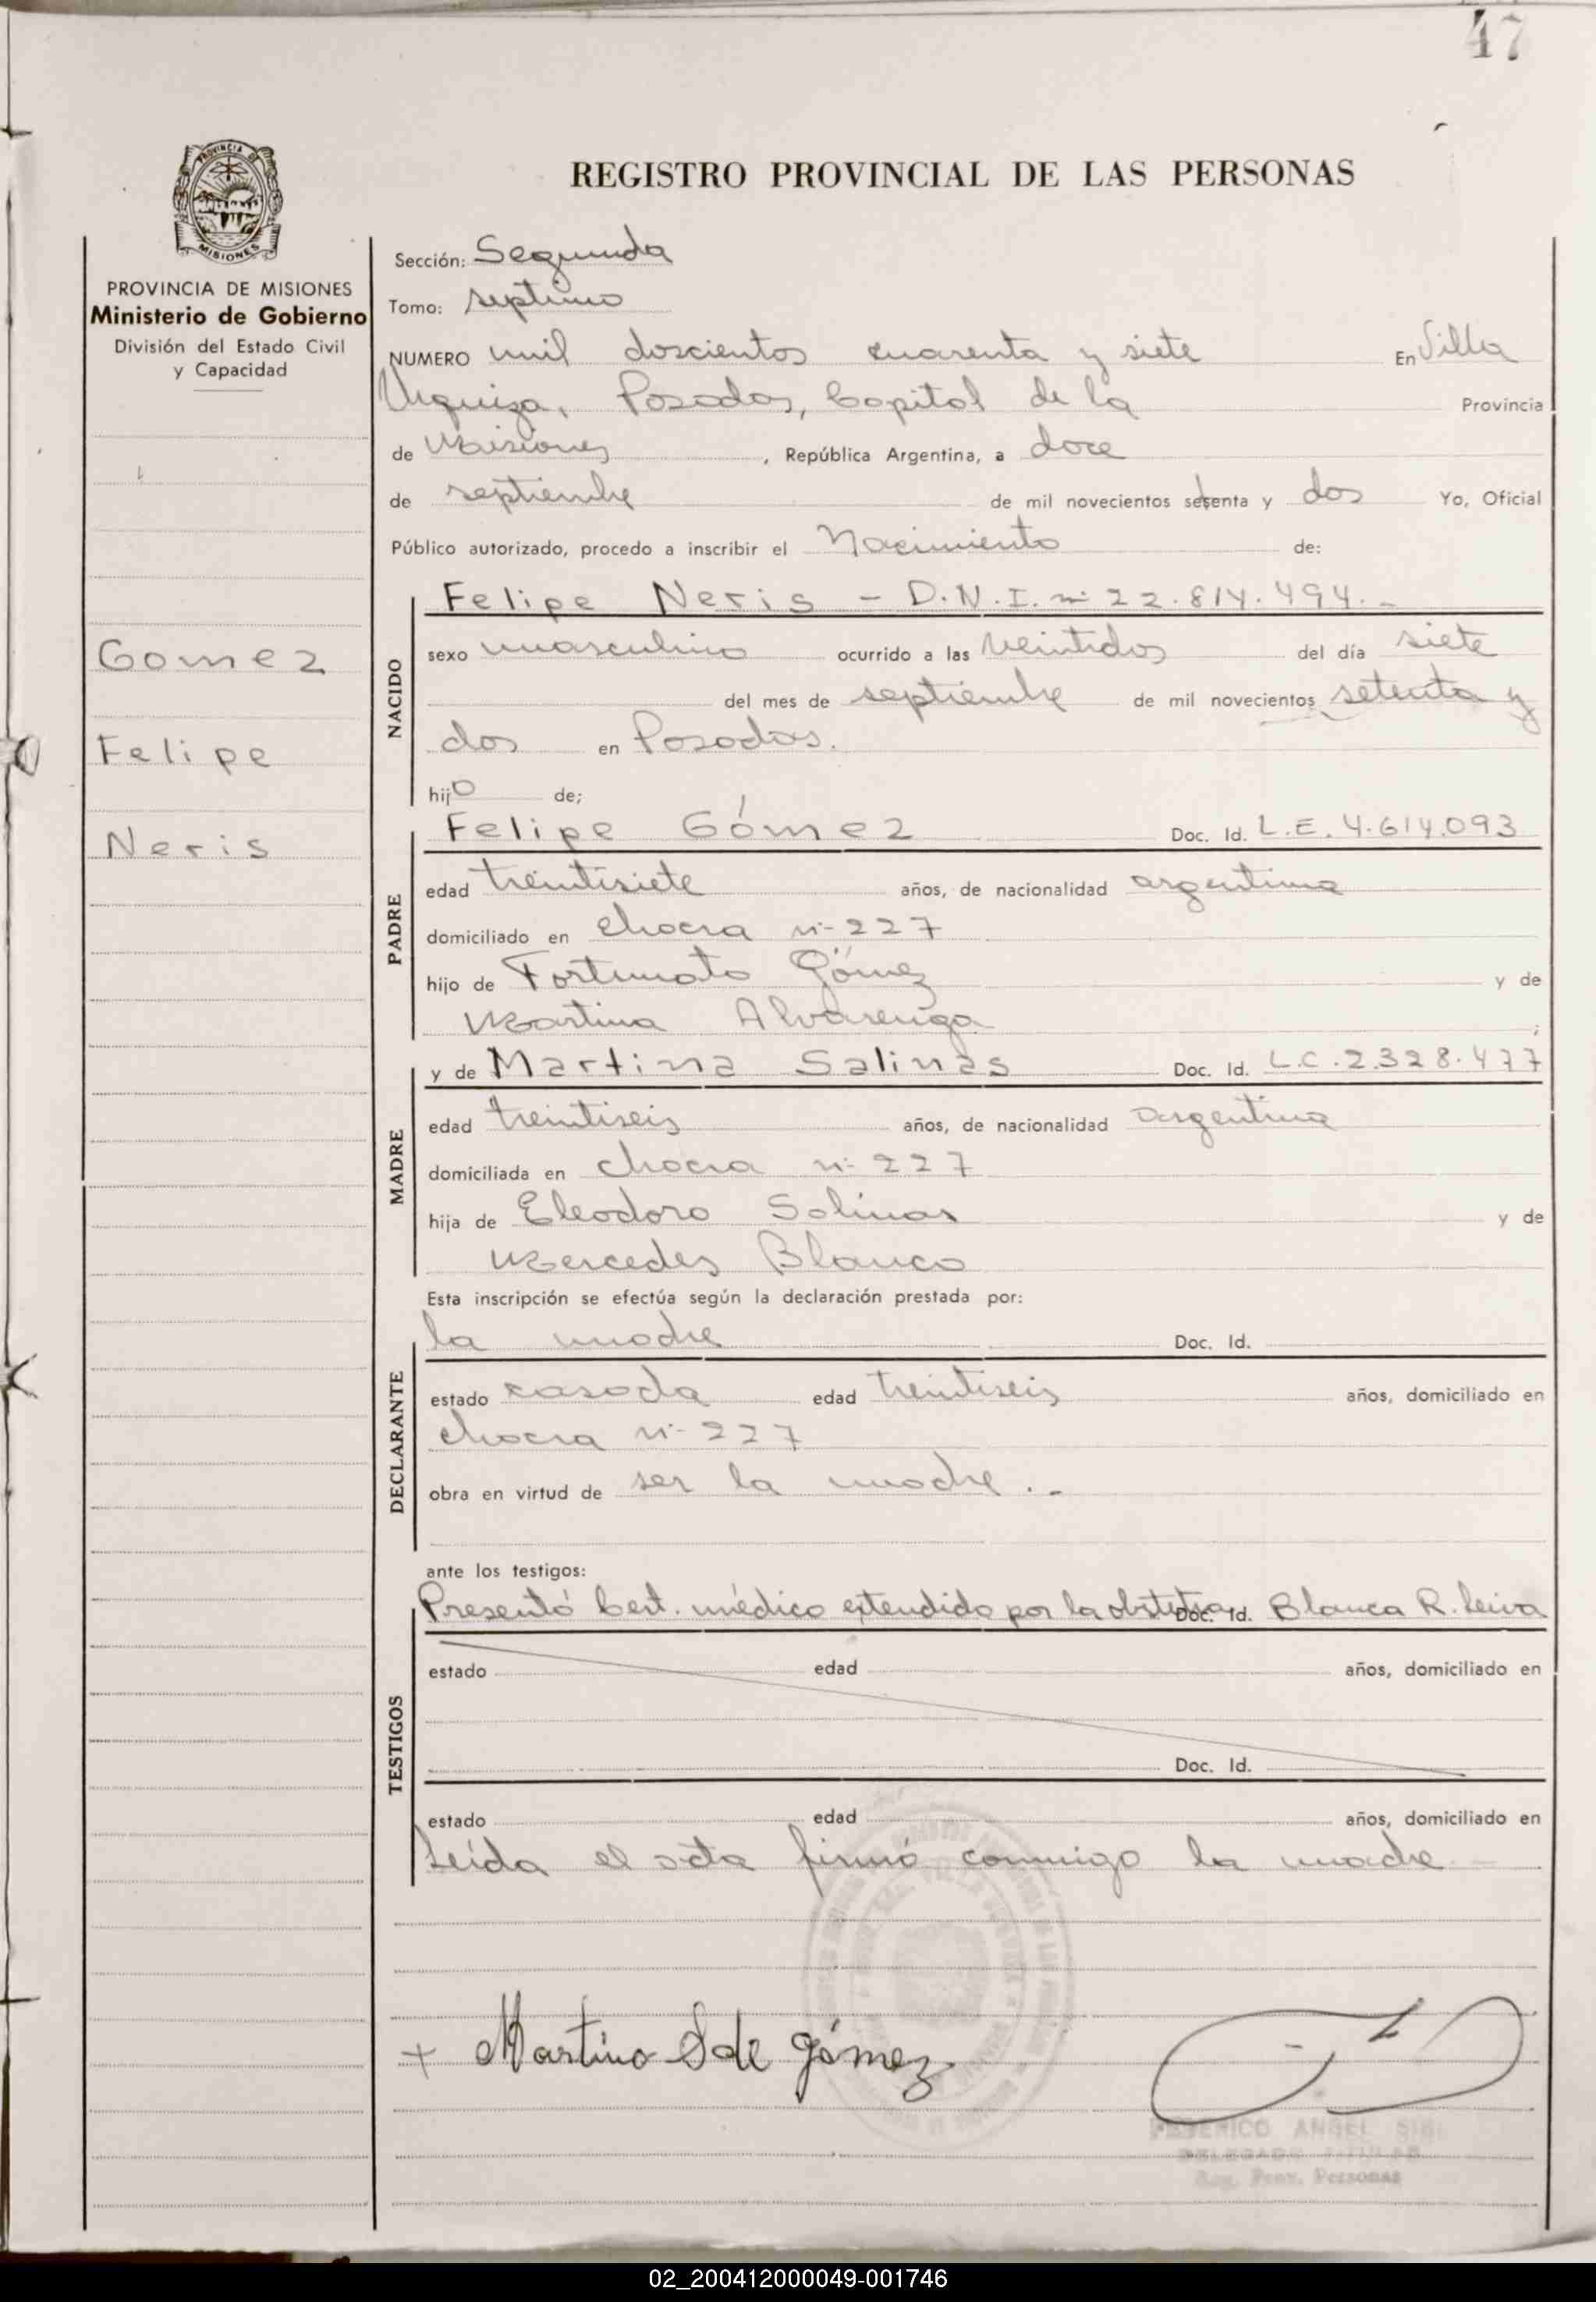 47
PROVINCIA DE
MISIONES
REGISTRO PROVINCIAL DE LAS PERSONAS
PROVINCIA DE MISIONES
Ministerio de Gobierno
División del Estado Civil
y Capacidad
Gomez
Felipe
Neris
Sección: Segunda
Tomo: septimo
NUMERO mil doscientos cuarenta y siete En Villa
Urquiza, Posadas, Capital de la Provincia
de Misiones, República Argentina, a doce
de septiembre de mil novecientos setenta y dos Yo, Oficial
Público autorizado, procedo a inscribir el Nacimiento de:
NACIDO
Felipe Neris - D.N.I. nº 22.814.494.-
sexo masculino ocurrido a las veintidos del día siete
del mes de septiembre de mil novecientos setenta y
dos en Posadas.
hijo de;
PADRE
Felipe Gómez Doc. Id. L.E. 4.614.093
edad treintisiete años, de nacionalidad argentina
domiciliado en chacra nº 227
hijo de Fortunato Gómez y de
Martina Alvarenga;
MADRE
y de Martina Salinas Doc. Id. L.C. 2.328.477
edad treintiseis años, de nacionalidad argentina
domiciliada en chacra nº 227
hija de Eleodoro Salinas y de
Mercedes Blanco
Esta inscripción se efectúa según la declaración prestada por:
DECLARANTE
la madre Doc. Id.
estado casada edad treintiseis años, domiciliado en
chacra nº 227
obra en virtud de ser la madre.-
ante los testigos:
TESTIGOS
Presentó Cert. médico extendido por la obstetra Doc. Id. Blanca R. Leiva
estado edad años, domiciliado en
Doc. Id.
estado edad años, domiciliado en
Leída el acta firmó conmigo la madre
+ Martina S de Gómez
FEDERICO ANGEL
DELEGADO TITULAR
Reg. Prov. Personas
02_200412000049-001746